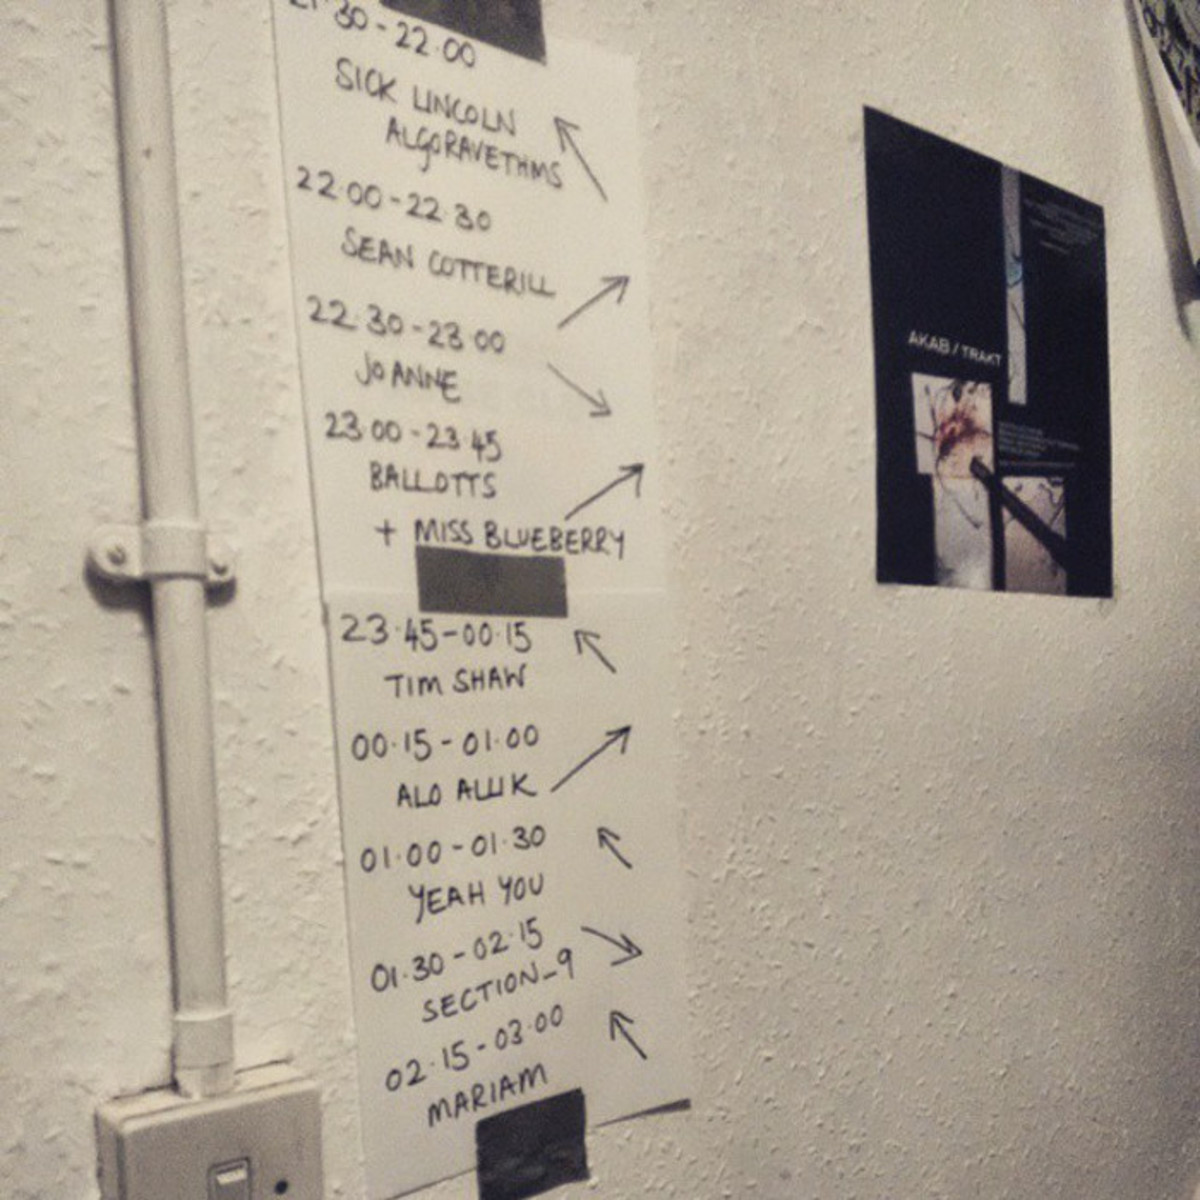 21·30-22·00
SICK LINCOLN
ALGORAVETHMS
22·00-22·30
SEAN COTTERILL
22·30-23·00
JOANNE
23·00-23·45
BALLOTTS
+ MISS BLUEBERRY
23·45-00·15
TIM SHAW
00·15-01·00
ALO ALLIK
01·00-01·30
YEAH YOU
01·30-02·15
SECTION_9
02·15-03·00
MARIAM
AKAB / TRAKT